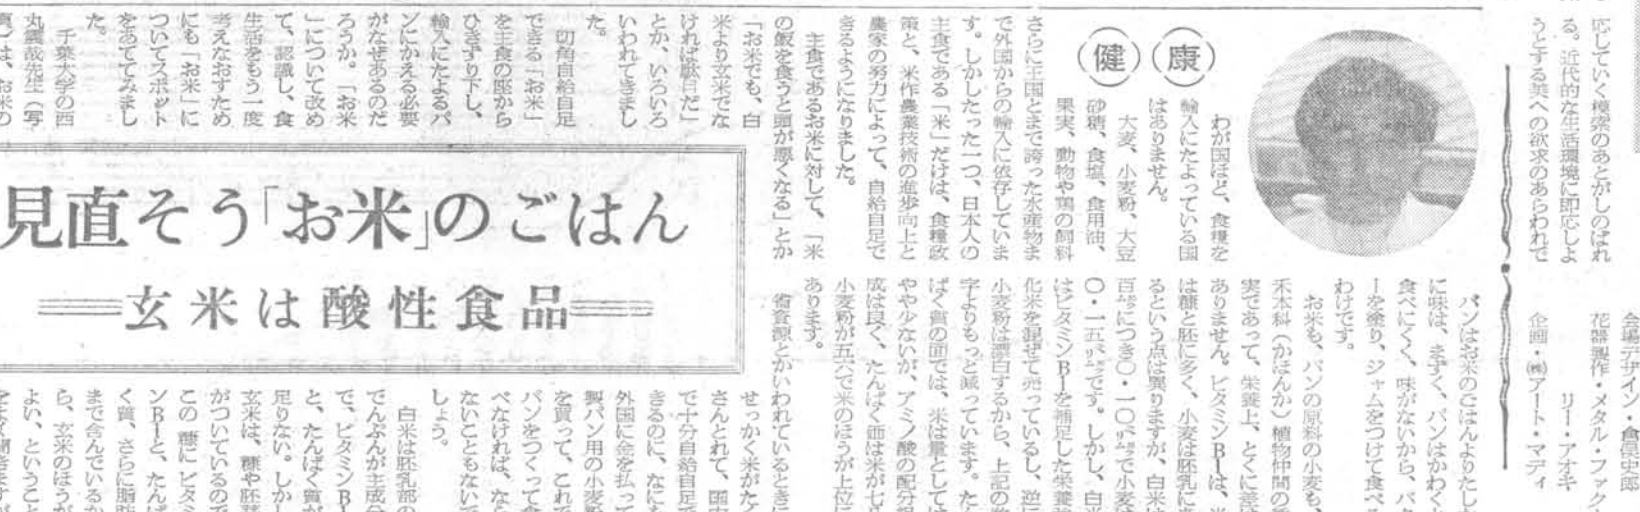 会場デザイン・倉俣史郎
花器製作・メタル・ファク
リー・アオキ
企画・㈱アート・マディ
応していく模索のあとがしのばれ
る。近代的な生活環境に即応しよ
うとする美への欲求のあらわれで
健康
わが国ほど、食糧を
輸入にたよっている国
はありません。
大麦、小麦粉、大豆
砂糖、食塩、食用油、
果実、動物や鶏の飼料
さらに王国とまで誇った水産物ま
で外国からの輸入に依存していま
す。しかしたった一つ、日本人の
主食である「米」だけは、食糧政
策と、米作農業技術の進歩向上と
農家の努力によって、自給自足で
きるようになりました。
主食であるお米に対して、「米
の飯を食うと頭が悪くなる」とか
「お米でも、白
米より玄米でな
ければ駄目だ」
とか、いろいろ
いわれてきまし
た。
切角自給自足
できる「お米」
を主食の座から
ひきずり下し、
輸入にたよるパ
ンにかえる必要
がなぜあるのだ
ろうか。「お米
」について改め
て、認識し、食
生活をもう一度
考えなおすため
にも「お米」に
ついてスポット
をあててみまし
た。
千葉大学の西
丸震哉先生（写
真）は、お米の
見直そう「お米」のごはん
玄米は酸性食品
パンはお米のごはんよりたし
に味は、まずく、パンはかわくと
食べにくく、味がないから、バタ
ーを塗り、ジャムをつけて食べる
わけです。
お米も、パンの原料の小麦も、
禾本科（かほんか）植物仲間の種
実であって、栄養上、とくに差は
ありません。ビタミンB1は、米
は糠と胚に多く、小麦は胚乳にあ
るという点は異りますが、白米は
百㌘につき〇・一〇㍉㌘で小麦は
〇・一五㍉㌘です。しかし、白米
はビタミンB1を補足した栄養強
化米を混ぜて売っているし、逆に
小麦粉は漂白するから、上記の数
字よりもっと減っています。たん
ぱく質の面では、米は量としては
やや少ないが、アミノ酸の配分組
成は良く、たんぱく価は米が七八
小麦粉が五六で米のほうが上位に
あります。
省資源とかいわれているときに
せっかく米がたく
さんとれて、国内
で十分自給自足で
きるのに、なにも
外国に金を払って
製パン用の小麦粉
を買って、これで
パンをつくって食
べなければ、なら
ないこともないで
しょう。
白米は胚乳部の
でんぷんが主成分
で、ビタミンB1
と、たんぱく質が
足りない。しかし
玄米は、糠や胚芽
がついているので
この糠にビタミ
ンB1と、たんぱ
く質、さらに脂肪
まで含んでいるか
ら、玄米のほうが
よい、ということ
をよく聞きますが